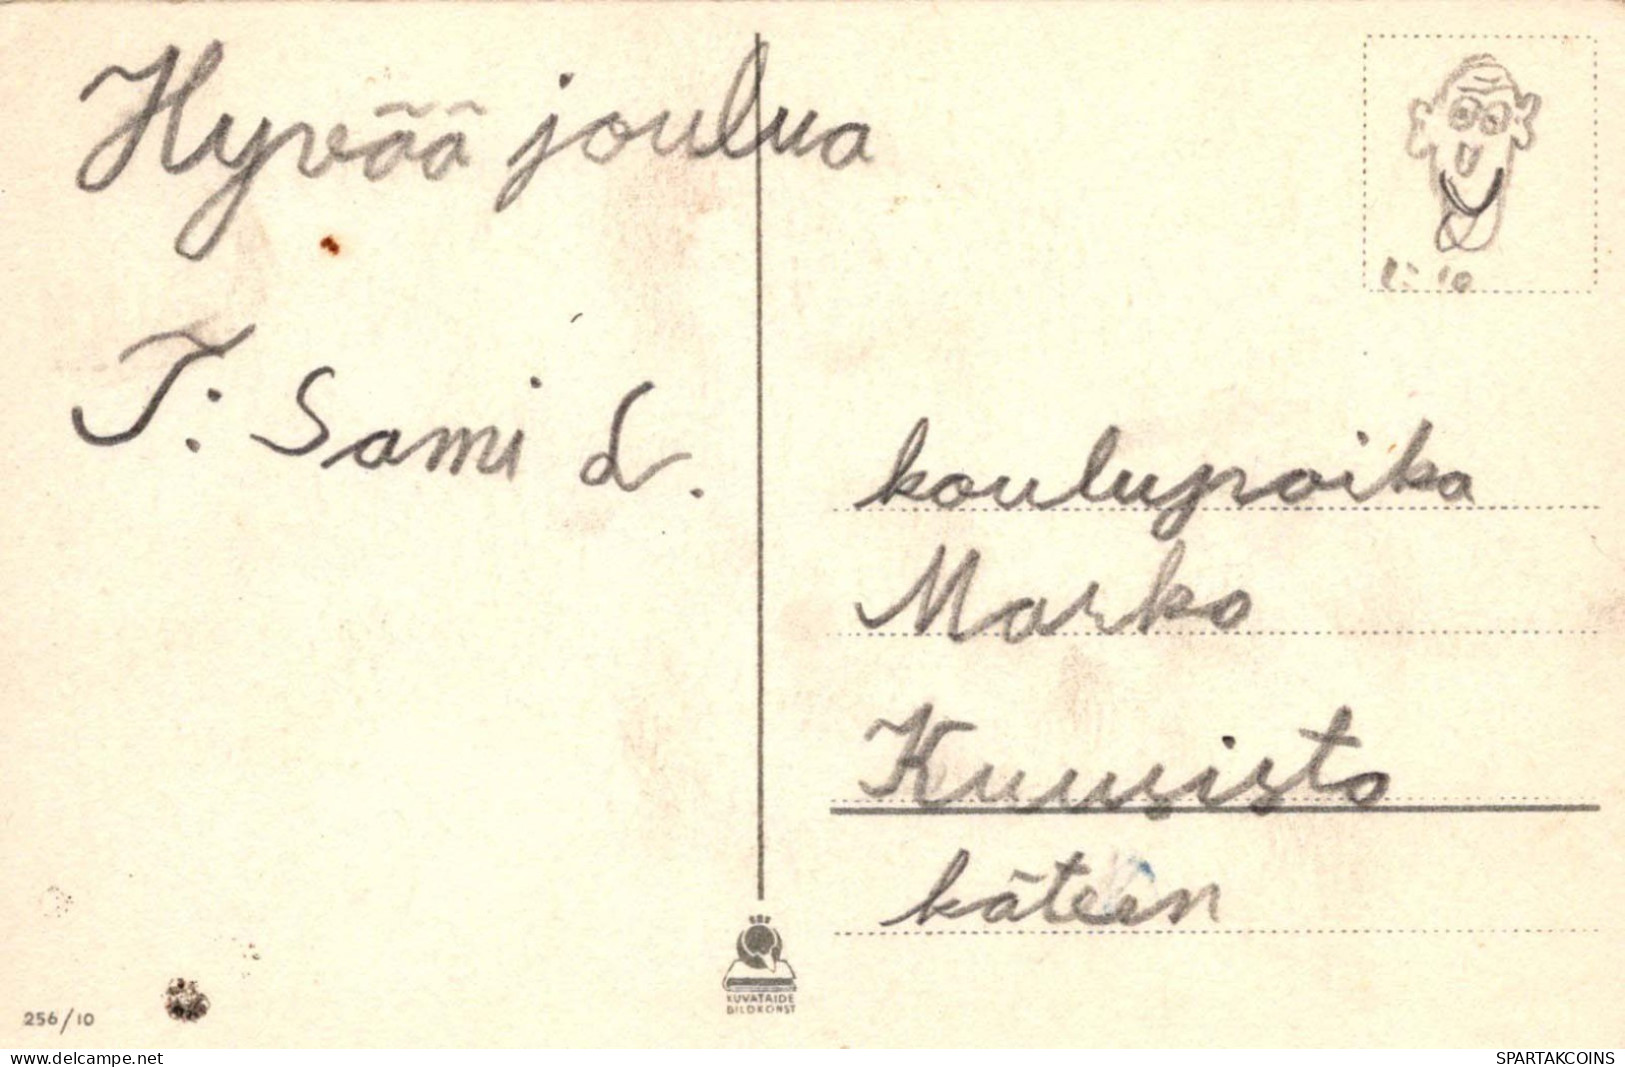 Hyvää joulua
T: Sami L.
koulupoika
Marko
Kuusisto
käteen
KUVATAIDE
BILDKONST
256/10
www.delcampe.net
SPARTAKCOINS